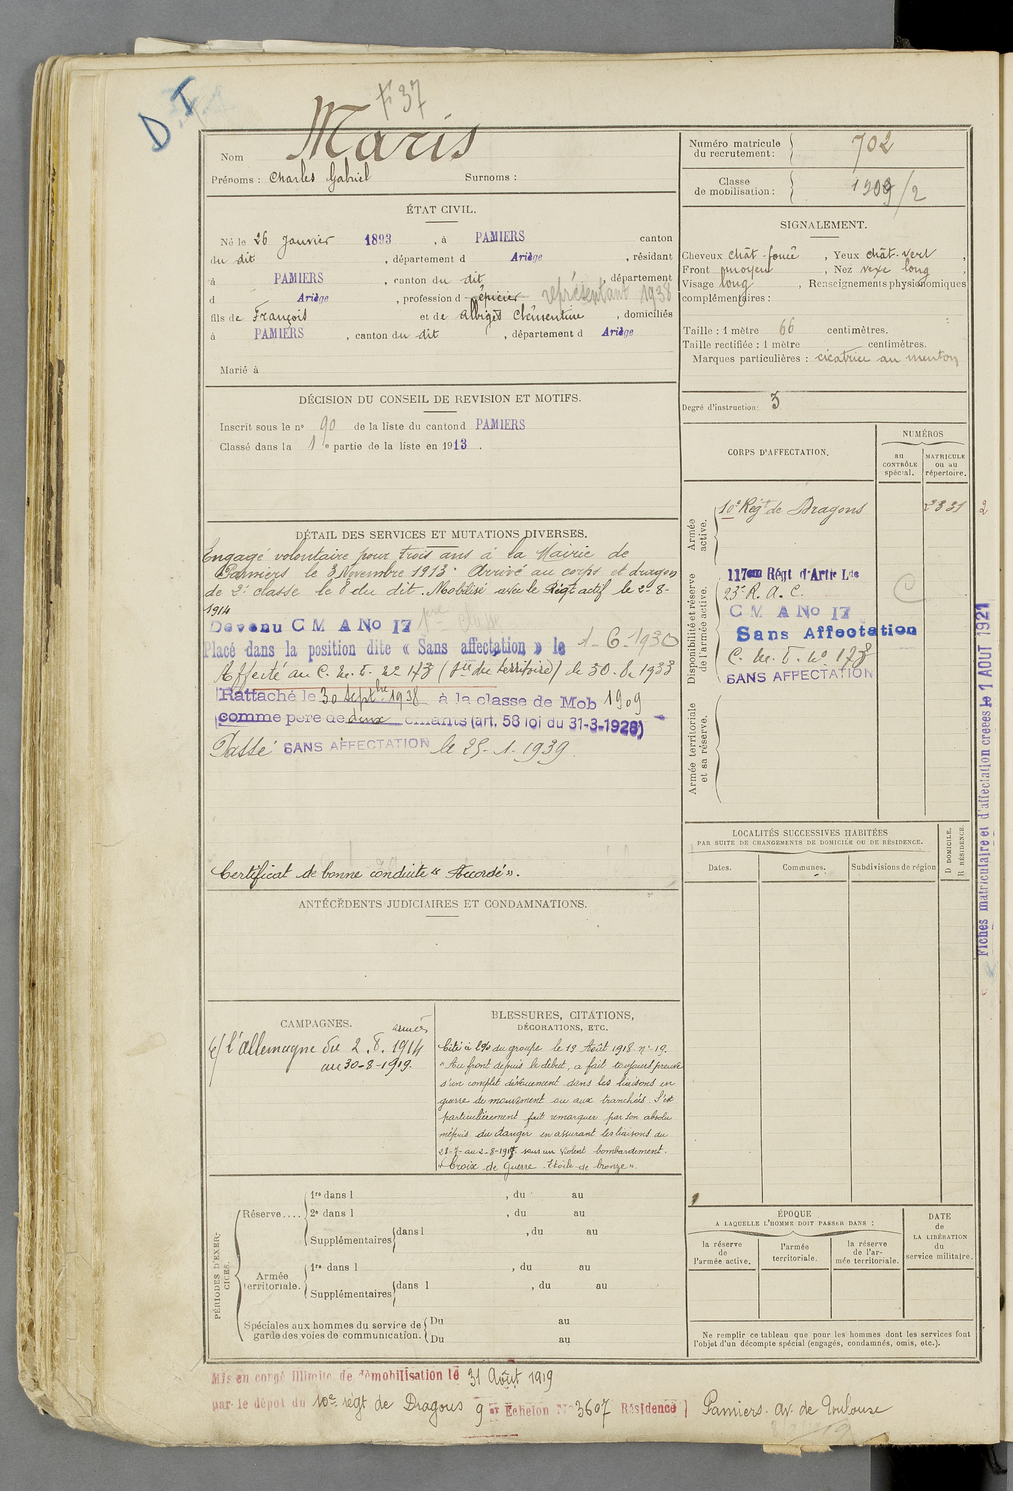 D T
F 37
Nom Maris
Prénoms : Charles Gabriel Surnoms :
Numéro matricule du recrutement : 702
Classe de mobilisation : 1909/2
ÉTAT CIVIL.
Né le 26 Janvier 1893, à PAMIERS canton
du dit, département d Ariège, résidant
à PAMIERS, canton du dit, département
d Ariège, profession d épicier représentant 1938
fils de François et de Albigès Clémentine, domiciliés
à PAMIERS, canton du dit, département d Ariège
Marié à
SIGNALEMENT.
Cheveux chât-foncé, Yeux chât-vert,
Front moyen, Nez vexe long,
Visage long, Renseignements physionomiques
complémentaires :
Taille : 1 mètre 66 centimètres.
Taille rectifiée : 1 mètre centimètres.
Marques particulières : cicatrice au menton
Degré d'instruction : 3
DÉCISION DU CONSEIL DE REVISION ET MOTIFS.
Inscrit sous le no 90 de la liste du canton d PAMIERS
Classé dans la 1re partie de la liste en 1913.
DÉTAIL DES SERVICES ET MUTATIONS DIVERSES.
Engagé volontaire pour trois ans à la Mairie de
Pamiers le 3 Novembre 1913. Arrivé au corps et dragon
de 2e classe le 8 du dit. Mobilisé avec le Régt actif le 2-8-
1914
Devenu C M A No 17
Placé dans la position dite « Sans affectation » le 1-6-1930
Affecté au C. M. I. no 173 (Sté du territoire) le 30.8.1933
Rattaché le 30 Septbre 1938 à la classe de Mob 1909
comme père de deux enfants (art. 58 loi du 31-3-1928)
Passé SANS AFFECTATION le 25-1-1939
Certificat de bonne conduite "Accordé".
CORPS D'AFFECTATION.
NUMÉROS
au CONTRÔLE spécial.
MATRICULE ou au répertoire.
Armée active.
10e Régt de Dragons 2331
Disponibilité et réserve de l'armée active.
117em Régt d'Artie Lde
23e R. A. C.
C
C M A No 17
Sans Affectation
C. M. I. no 173
SANS AFFECTATION
Armée territoriale et sa réserve.
LOCALITÉS SUCCESSIVES HABITÉES
PAR SUITE DE CHANGEMENTS DE DOMICILE OU DE RÉSIDENCE.
Dates.
Communes.
Subdivisions de région
D DOMICILE.
R RÉSIDENCE.
Fiches matriculaire et d'affectation créées le 1 AOUT 1921
ANTÉCÉDENTS JUDICIAIRES ET CONDAMNATIONS.
CAMPAGNES.
armées
c/ l'Allemagne du 2.8.1914
au 30-8-1919.
BLESSURES, CITATIONS,
DÉCORATIONS, ETC.
Cité à l'O/ du groupe le 19 Août 1918 no 19.
"Au front depuis le début, a fait toujours preuve
d'un complet dévouement dans les liaisons en
guerre de mouvement ou aux tranchées. S'est
particulièrement fait remarquer par son absolu
mépris du danger en assurant les liaisons du
21-7- au 2-8-1918 sous un violent bombardement.
"Croix de Guerre étoile de bronze".
PÉRIODES D'EXERCICES.
Réserve....
1re dans l , du au
2e dans l , du au
Supplémentaires dans l , du au
Armée territoriale.
1re dans l , du au
Supplémentaires dans l , du au
Spéciales aux hommes du service de garde des voies de communication.
Du au
Du au
ÉPOQUE
A LAQUELLE L'HOMME DOIT PASSER DANS :
la réserve de l'armée active.
l'armée territoriale.
la réserve de l'armée territoriale.
DATE de LA LIBÉRATION du service militaire.
Ne remplir ce tableau que pour les hommes dont les services font
l'objet d'un décompte spécial (engagés, condamnés, omis, etc.).
Mis en congé illimité de démobilisation le 31 Août 1919
par le dépôt du 10e régt de Dragons 9 Echelon No 3607 Résidence Pamiers av. de Toulouse